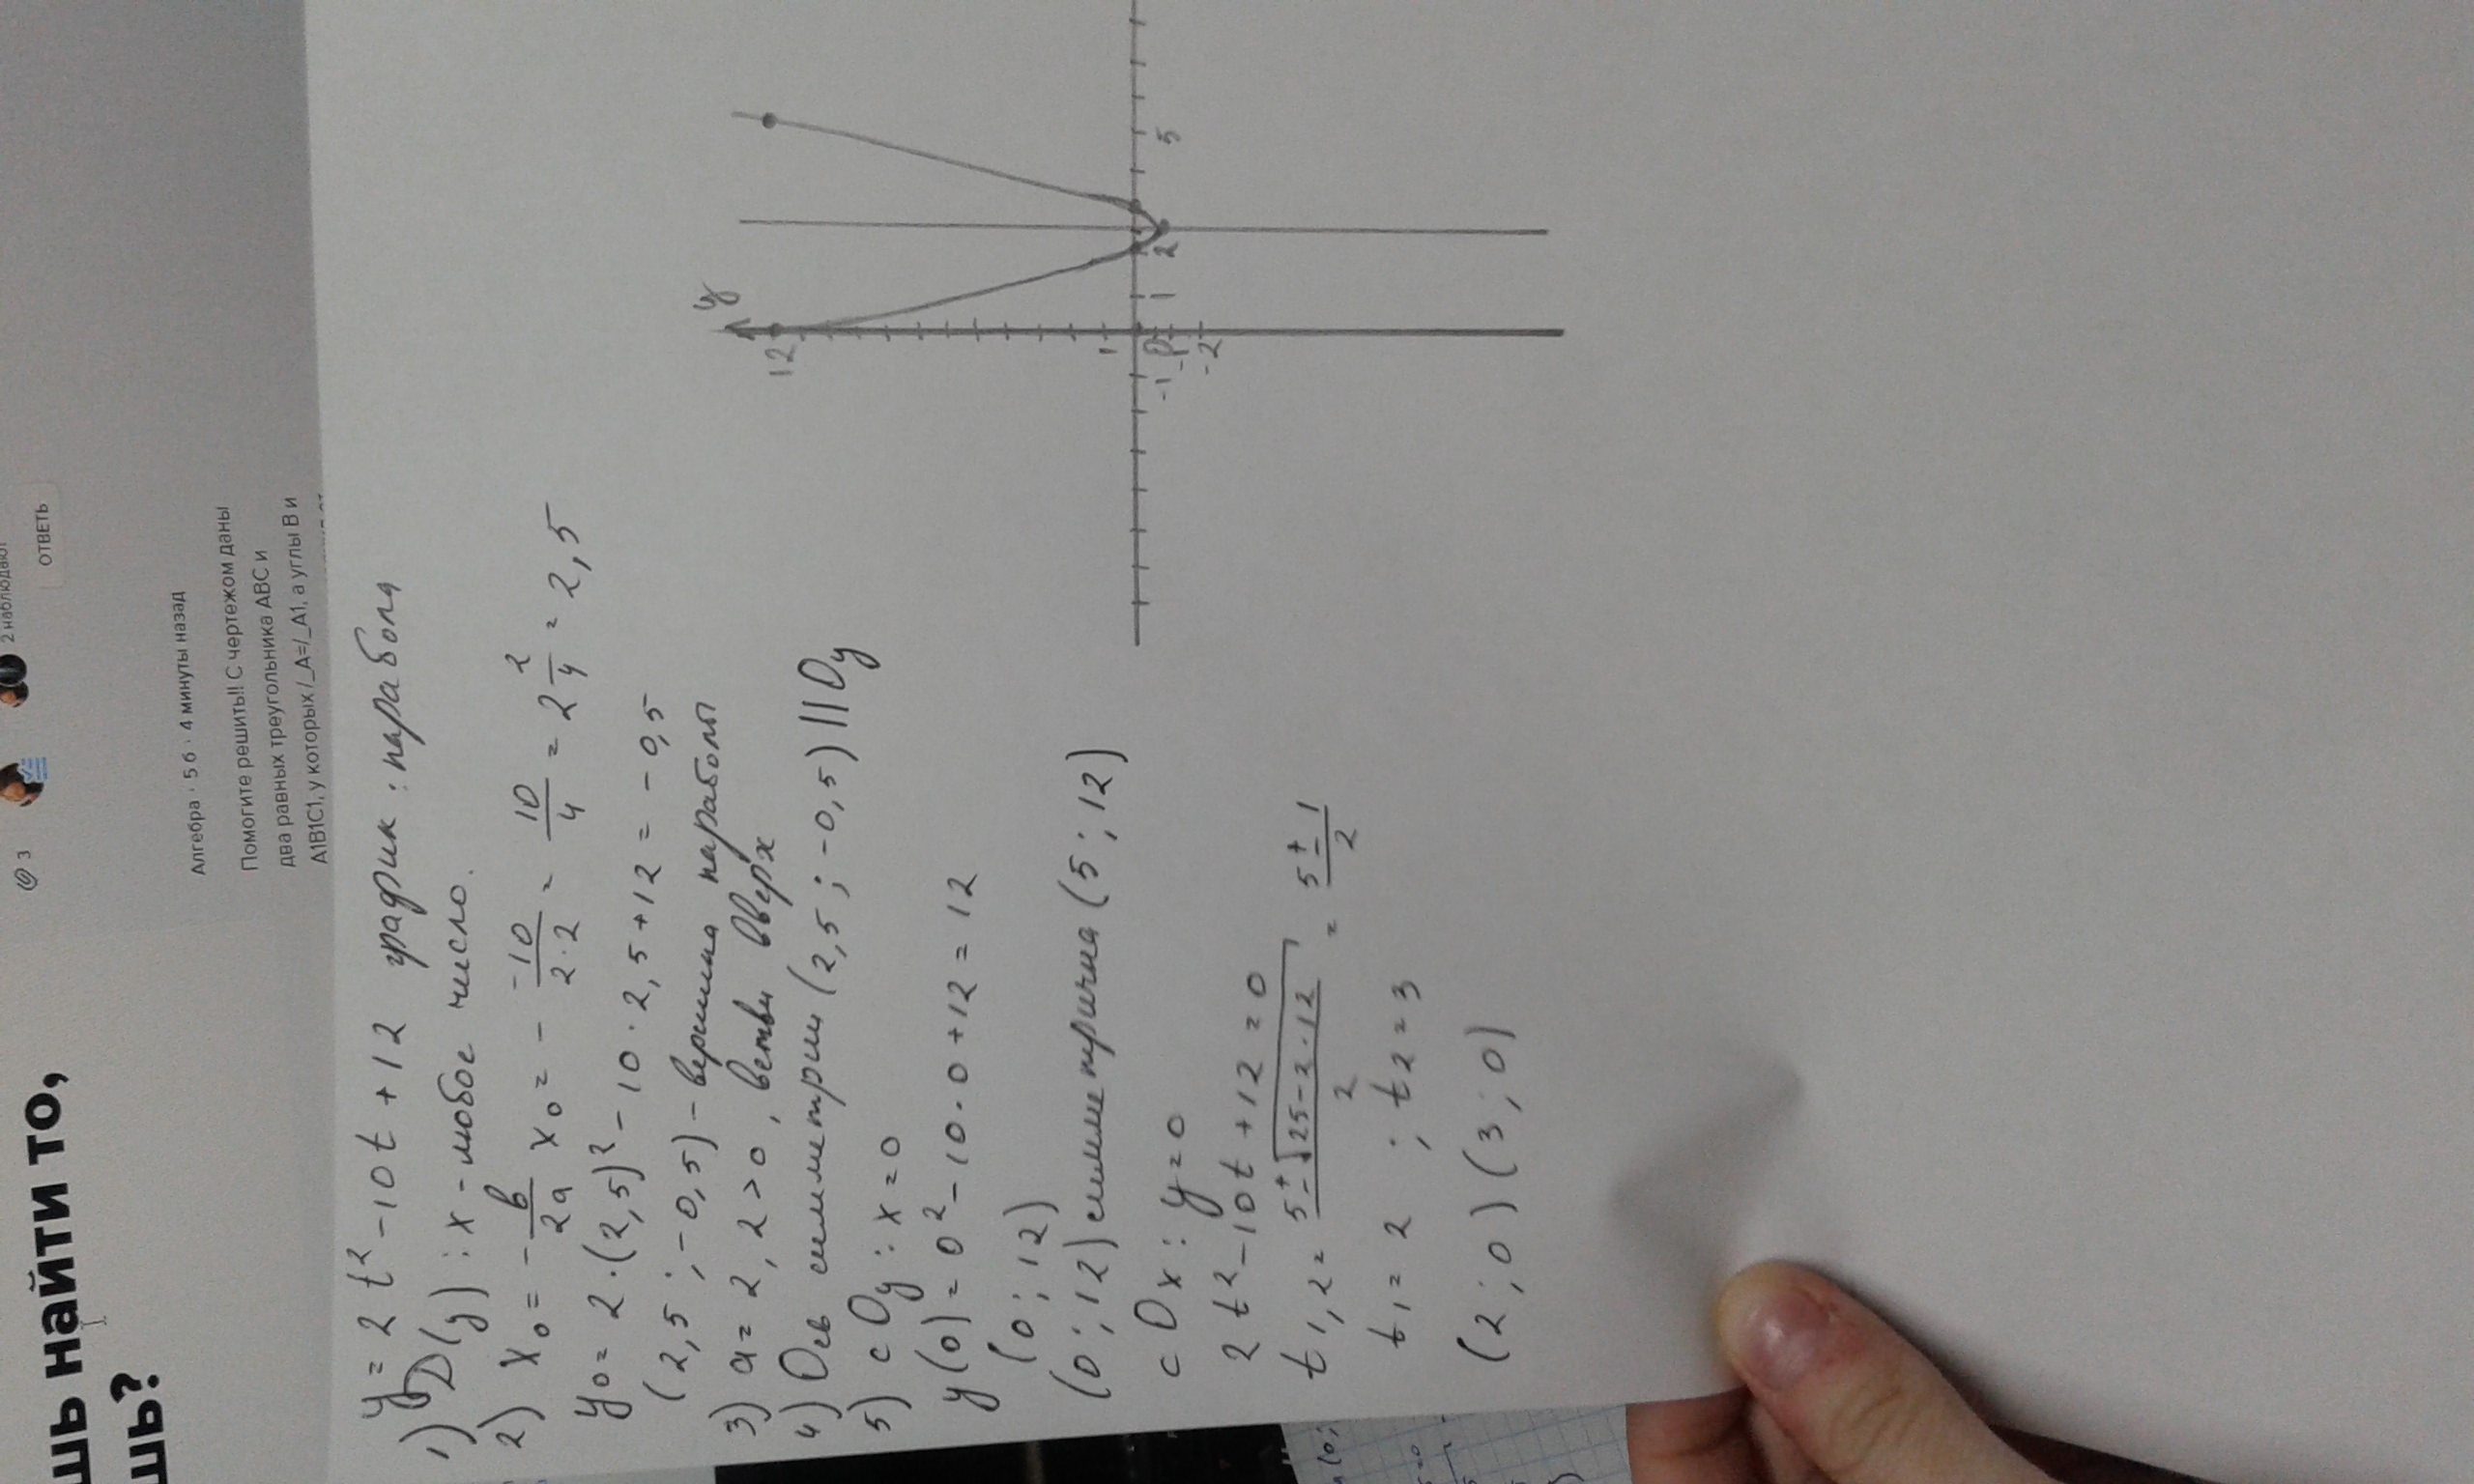 шь найти то,
шь?
3
2 наблюдают
ОТВЕТЬ
Алгебра · 5 б · 4 минуты назад
Помогите решить!! С чертежом даны
два равных треугольника ABC и
A1B1C1, у которых /_A=/_A1, а углы B и
y = 2t² - 10t + 12 график : парабола
1) D(y) : x - любое число.
2) x₀ = -b/2a x₀ = - -10/2·2 = 10/4 = 2 2/4 = 2,5
y₀ = 2·(2,5)² - 10·2,5 + 12 = -0,5
(2,5 ; -0,5) - вершина параболы
3) a = 2, 2 > 0, ветви вверх
4) Ось симметрии (2,5 ; -0,5) || Oy
5) с Oy : x = 0
y(0) = 0² - 10·0 + 12 = 12
(0 ; 12)
(0 ; 12) симметрична (5 ; 12)
с Ox : y = 0
2t² - 10t + 12 = 0
t₁,₂ = 5±√25-2·12/2 = 5±1/2
t₁ = 2 ; t₂ = 3
(2 ; 0) (3 ; 0)
y
12
1
0
-1
1
2
5
-1
-2